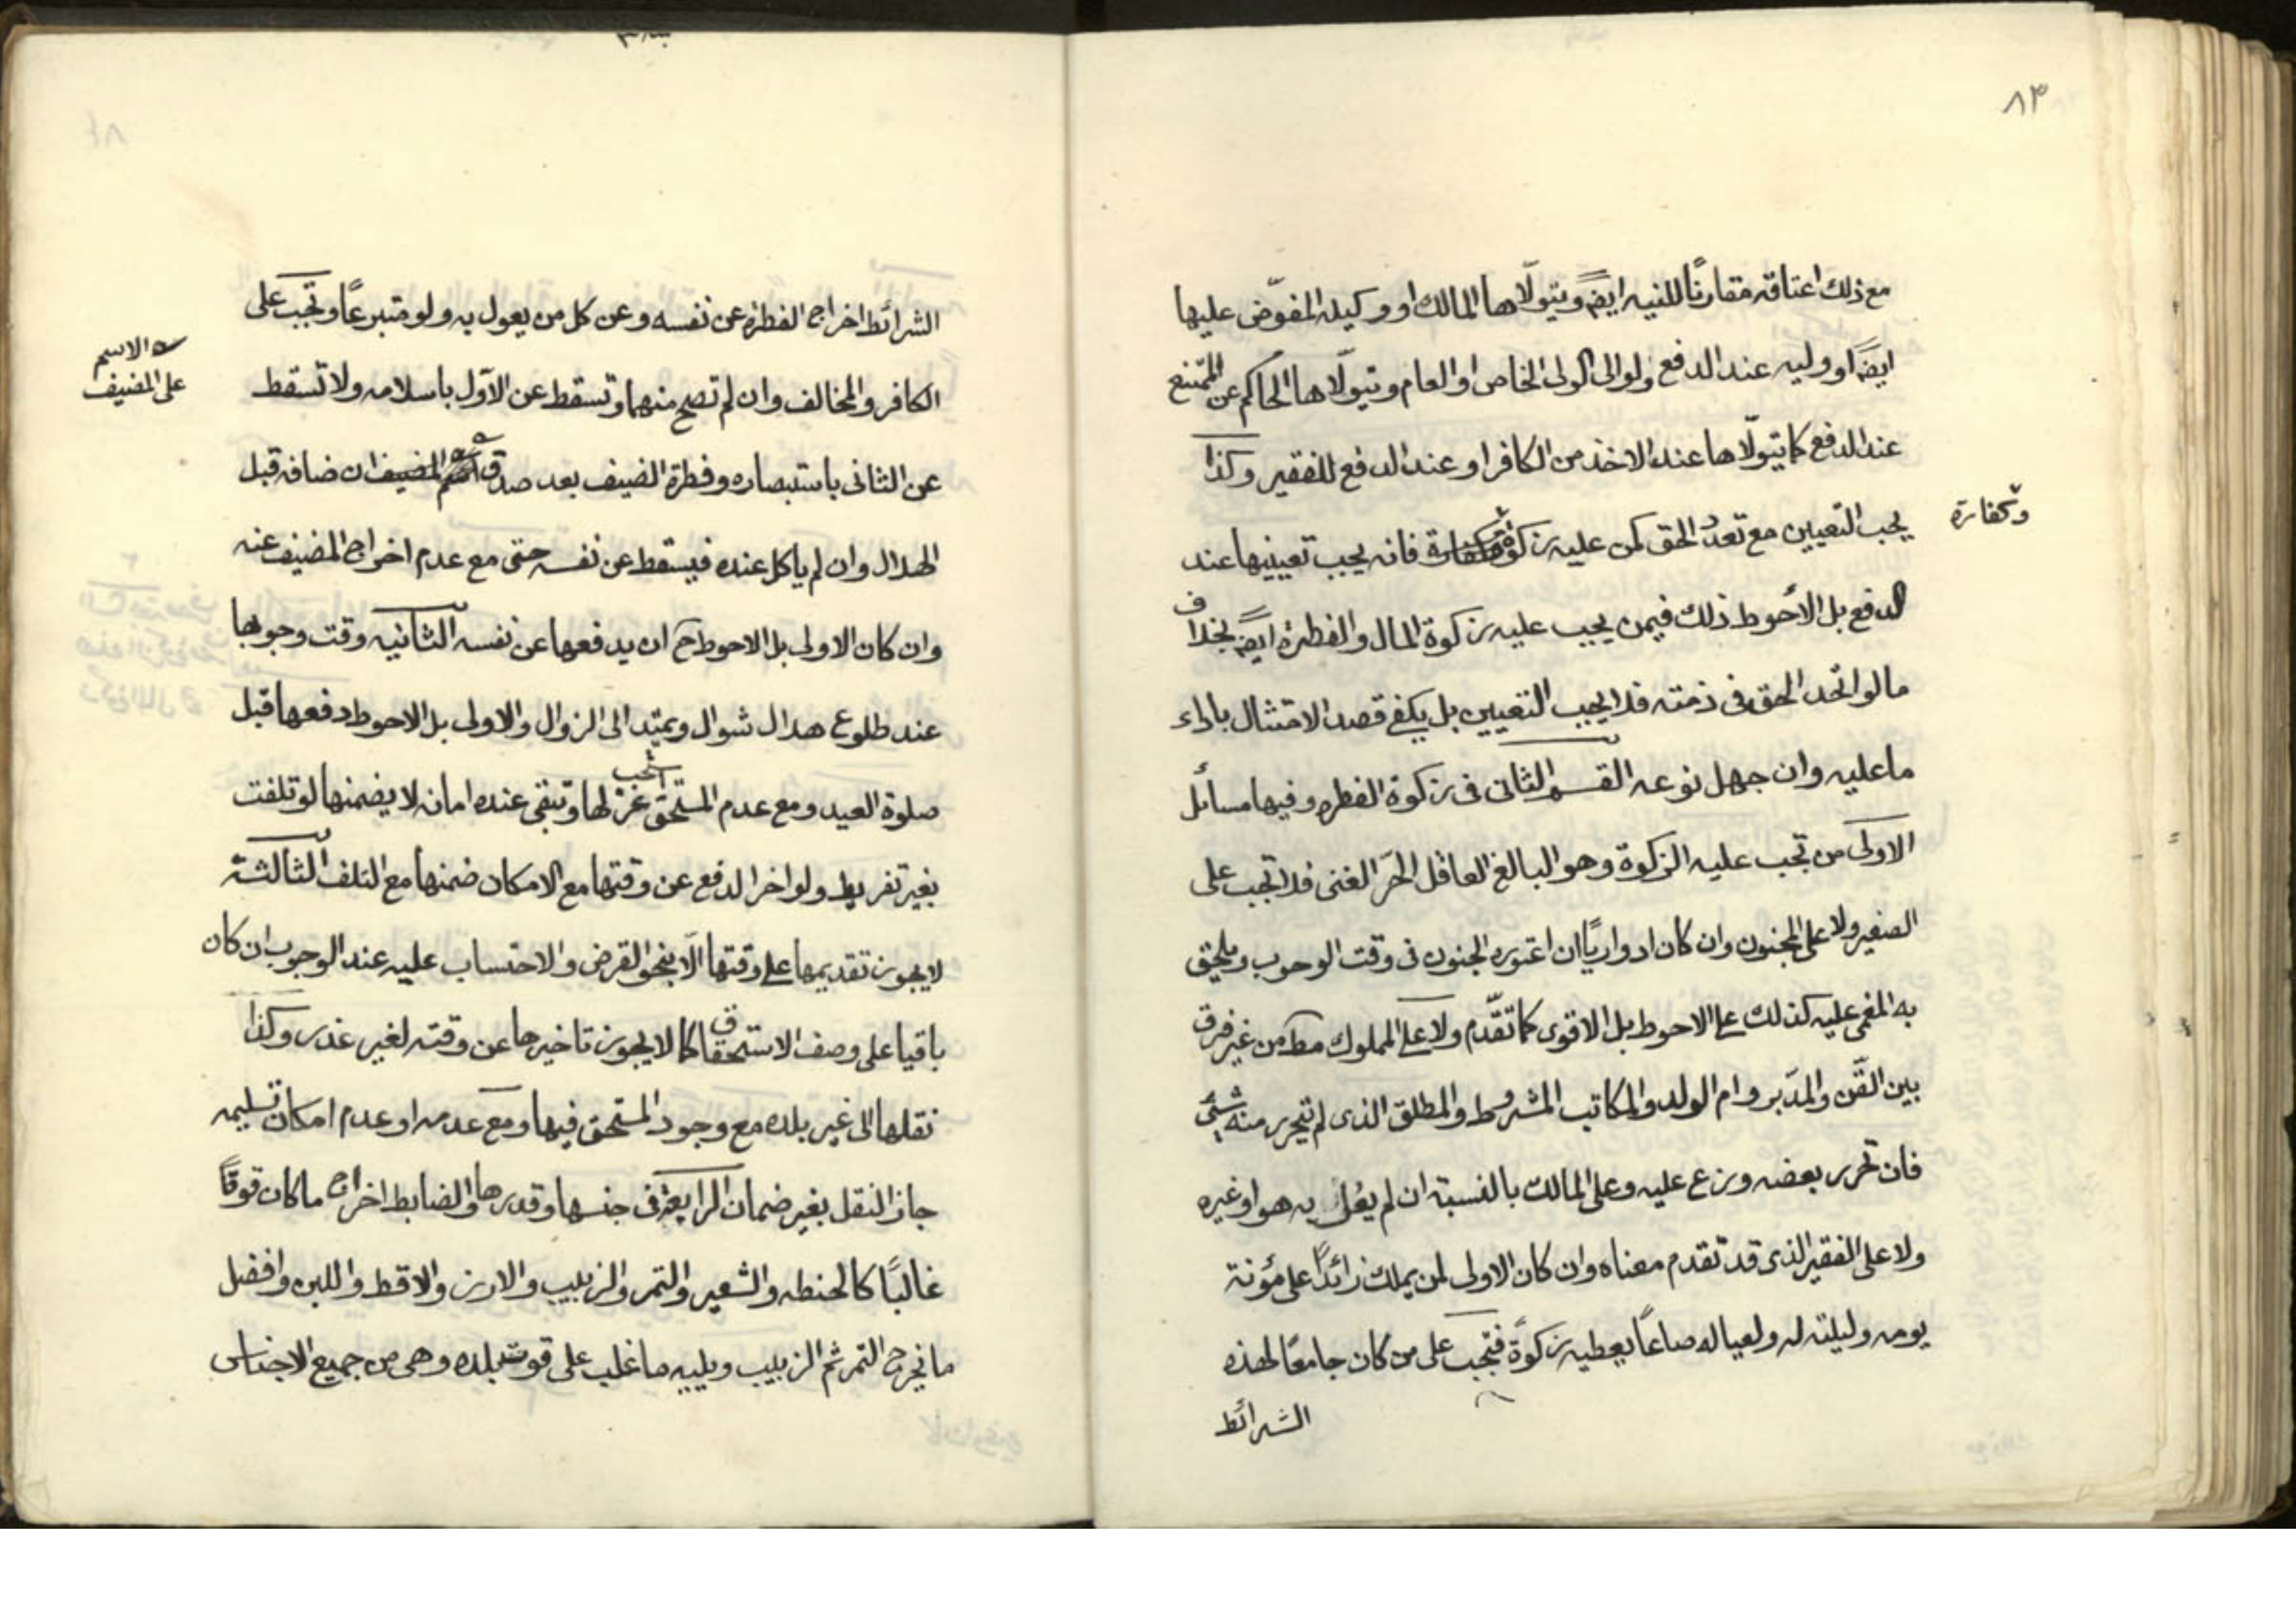 ٨٣
مع ذلك اعتاقه مقارنًا للنيه ايضً ويتولّاها المالك او وكيله المفوّض عليها
ايضًا او وليه عند الدفع ولو الى الولى الخاص او العام ويتولّاها الحاكم عن الممتنع
عند الدفع كما يتولّاها عند الاخذ من الكافر او عند الدفع للفقير وكذا
يجب التعيين مع تعدد الحق كمن عليه زكوة فانه يجب تعيينها عند
وكفارة
الدفع بل الأحوط ذلك فيمن يجب عليه زكوة المال والفطرة ايضً بخلاف
ما لو اتحد الحق فى ذمته فلا يجب التعيين بل يكفے قصد الامتثال باداء
ما عليه وان جهل نوعه القسم الثانى فى زكوة الفطره وفيها مسائل
الاولى من تجب عليه الزكوة وهو البالغ العاقل الحرّ الغنى فلا تجب على
الصغير ولا على المجنون وان كان ادواريًا ان اعتوره الجنون فى وقت الوجوب ويلحق
به المغمى عليه كذلك على الاحوط بل الاقوى كما تقدّم ولا على المملوك مط من غير فرق
بين القنّ والمدّبر وام الولد والمكاتب المشروط والمطلق الذى لم تيحرر منه شئ
فان تحرر بعضه وزع عليه وعلى المالك بالنسبة ان لم يعُل به هو او غيره
ولا على الفقير الذى قد تقدم معناه وان كان الاولى لمن يملك زائدًا على مؤنة
يومه وليلته له ولعياله صاعًا يعطيه زكوةً فتجب على من كان جامعًا لهذه
الشرائط
الشرائط اخراج الفطرة عن نفسه وعن كل من يعول به ولو متبرعًا وتجب على
الكافر والمخالف وان لم تصح منهما وتسقط عن الاوّل باسلامه ولا تسقط
الاسم
على المضيف
عن الثانى باستبصاره وفطرة الضيف بعد صدق ان ضافه قبل
الهلال وان لم ياكل عنده فيسقط عن نفسه حتى مع عدم اخراج المضيف عنه
وان كان الاولى بل الاحوط ح ان يدفعها عن نفسه الثانيه وقت وجوبها
عند طلوع هلال شوال ويمتد الى الزوال والاولى بل الاحوط دفعها قبل
صلوة العيد ومع عدم المستحق عزلها وتبقى عنده امانه لا يضمنها لو تلفت
بغير تفريط ولو اخر الدفع عن وقتها مع الامكان ضمنها مع التلف الثالثة
لا يجوز تقديمها على وقتها الّا بنحو القرض والاحتساب عليه عند الوجوب ان كان
باقيا على وصف الاستحقاق كما لا يجوز تاخيرها عن وقته لغير عذر وكذا
نقلها الى غير بلده مع وجود المستحق فيها ومع عدمه او عدم امكان تسليمه
جاز النقل بغير ضمان الرابعة فى جنسها وقدرها والضابط اخراج ما كان قوتًا
غالبًا كالحنطه والشعير والتمر والزبيب والارز والاقط واللبن وافضل
ما نخرج التمر ثم الزبيب ويليه ما غلب على قوت بلده وهى من جميع الاجناس